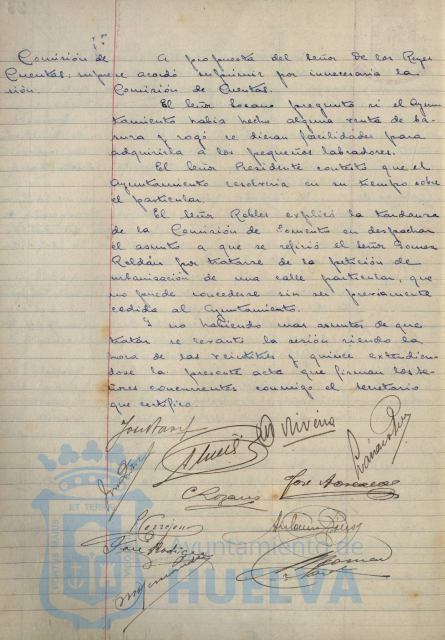 Comisión de
Cuentas; supre
sión.
A propuesta del Señor De los Reyes
se acordó suprimir por innecesaria la
Comisión de Cuentas.
El Señor Lozano preguntó si el Ayun-
tamiento había hecho alguna venta de ba-
sura y rogó se dieran facilidades para
adquirirla a los pequeños labradores.
El Señor Presidente contestó que el
Ayuntamiento resolvería en su tiempo sobre
el particular.
El Señor Robles explicó la tardanza
de la Comisión de Fomento en despachar
el asunto a que se refirió el Señor Gomez
Roldán por tratarse de la petición de
urbanización de una calle particular, que
no puede concederse sin ser previamente
cedida al Ayuntamiento.
Y no habiendo mas asuntos de que
tratar se levantó la sesión siendo la
hora de las veintitres y quince extendien-
dose la presente acta que firman los Se-
ñores concurrentes conmigo el Secretario
que certifico.
Rivera
C Lozano
José
José Rodriguez
ET TERRAE
Ayuntamiento de
HUELVA